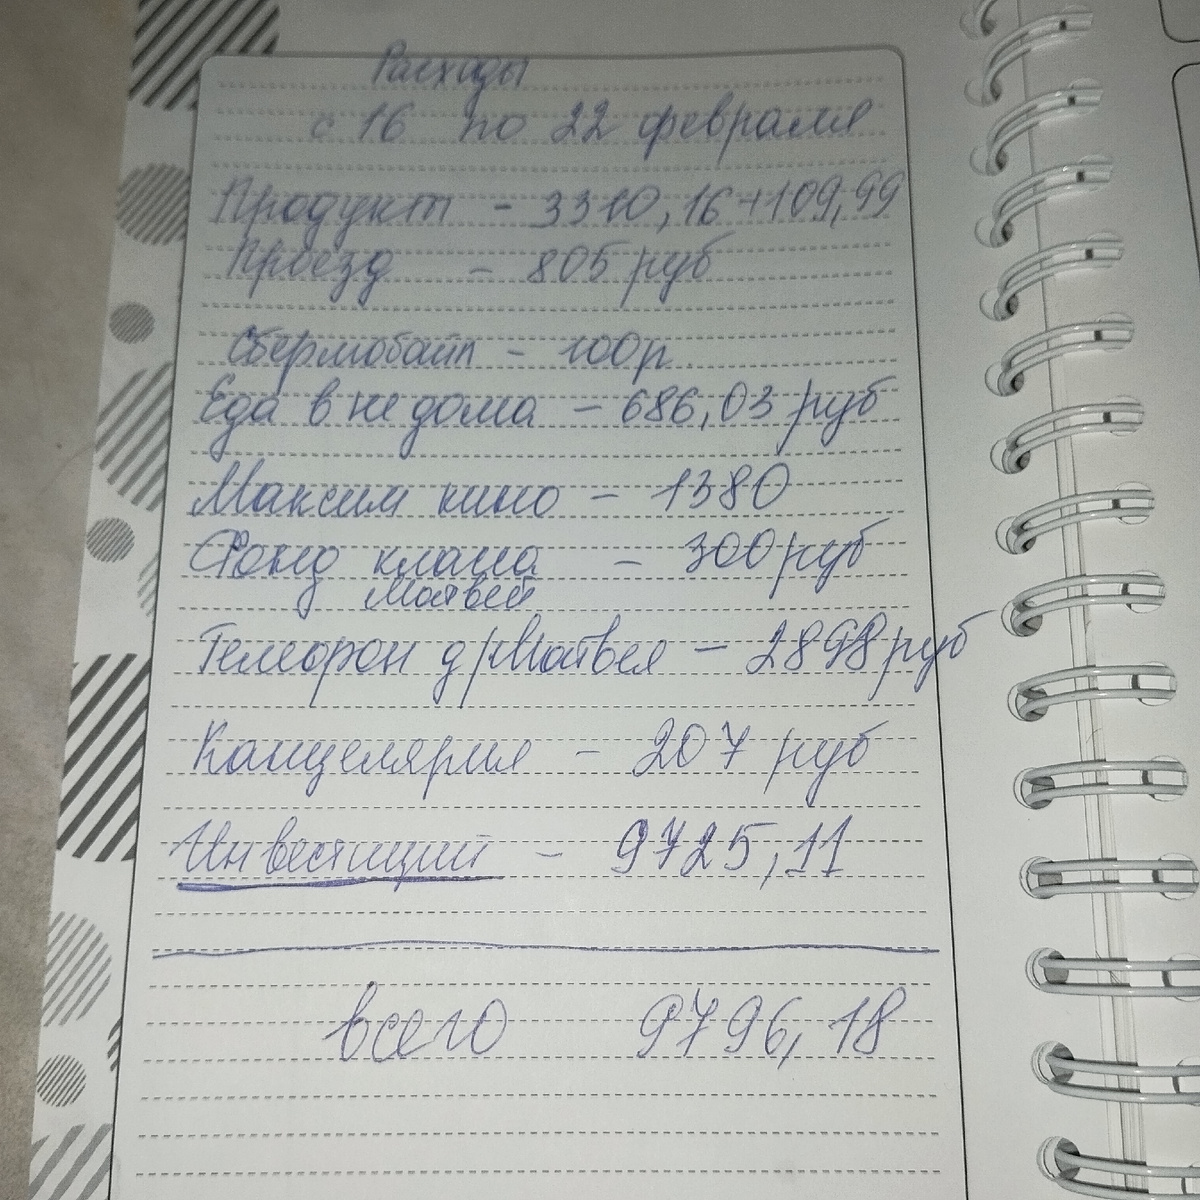 Расходы
с 16 по 22 февраля
Продукт - 3310,16+109,99
Проезд - 805 руб
Сбермобайл - 100р.
Еда в не дома - 686,03 руб
Максим кино - 1380
Фонд класса - 300 руб
Матвей
Телефон др Матвея - 2898 руб
Канцелярия - 207 руб
Инвестиций - 9725,11
всего 9796,18